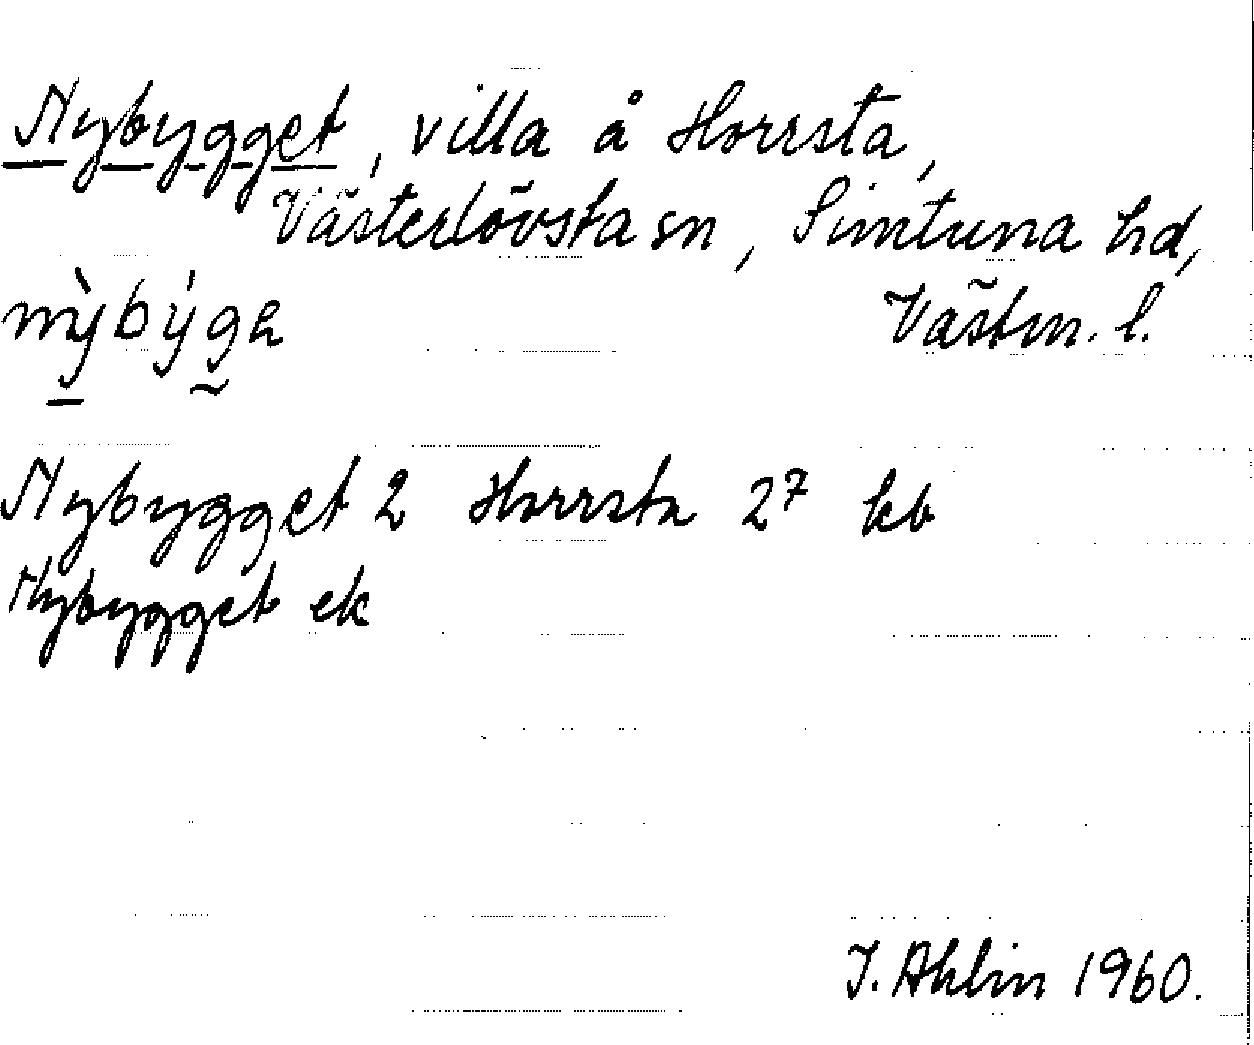 Nybygget, villa å Horrsta,
Västerlövsta sn, Simtuna hd,
Västm. l.
Nybygget 2 Horrsta 2⁷ kb
Nybygget ek
I. Ahlin 1960.